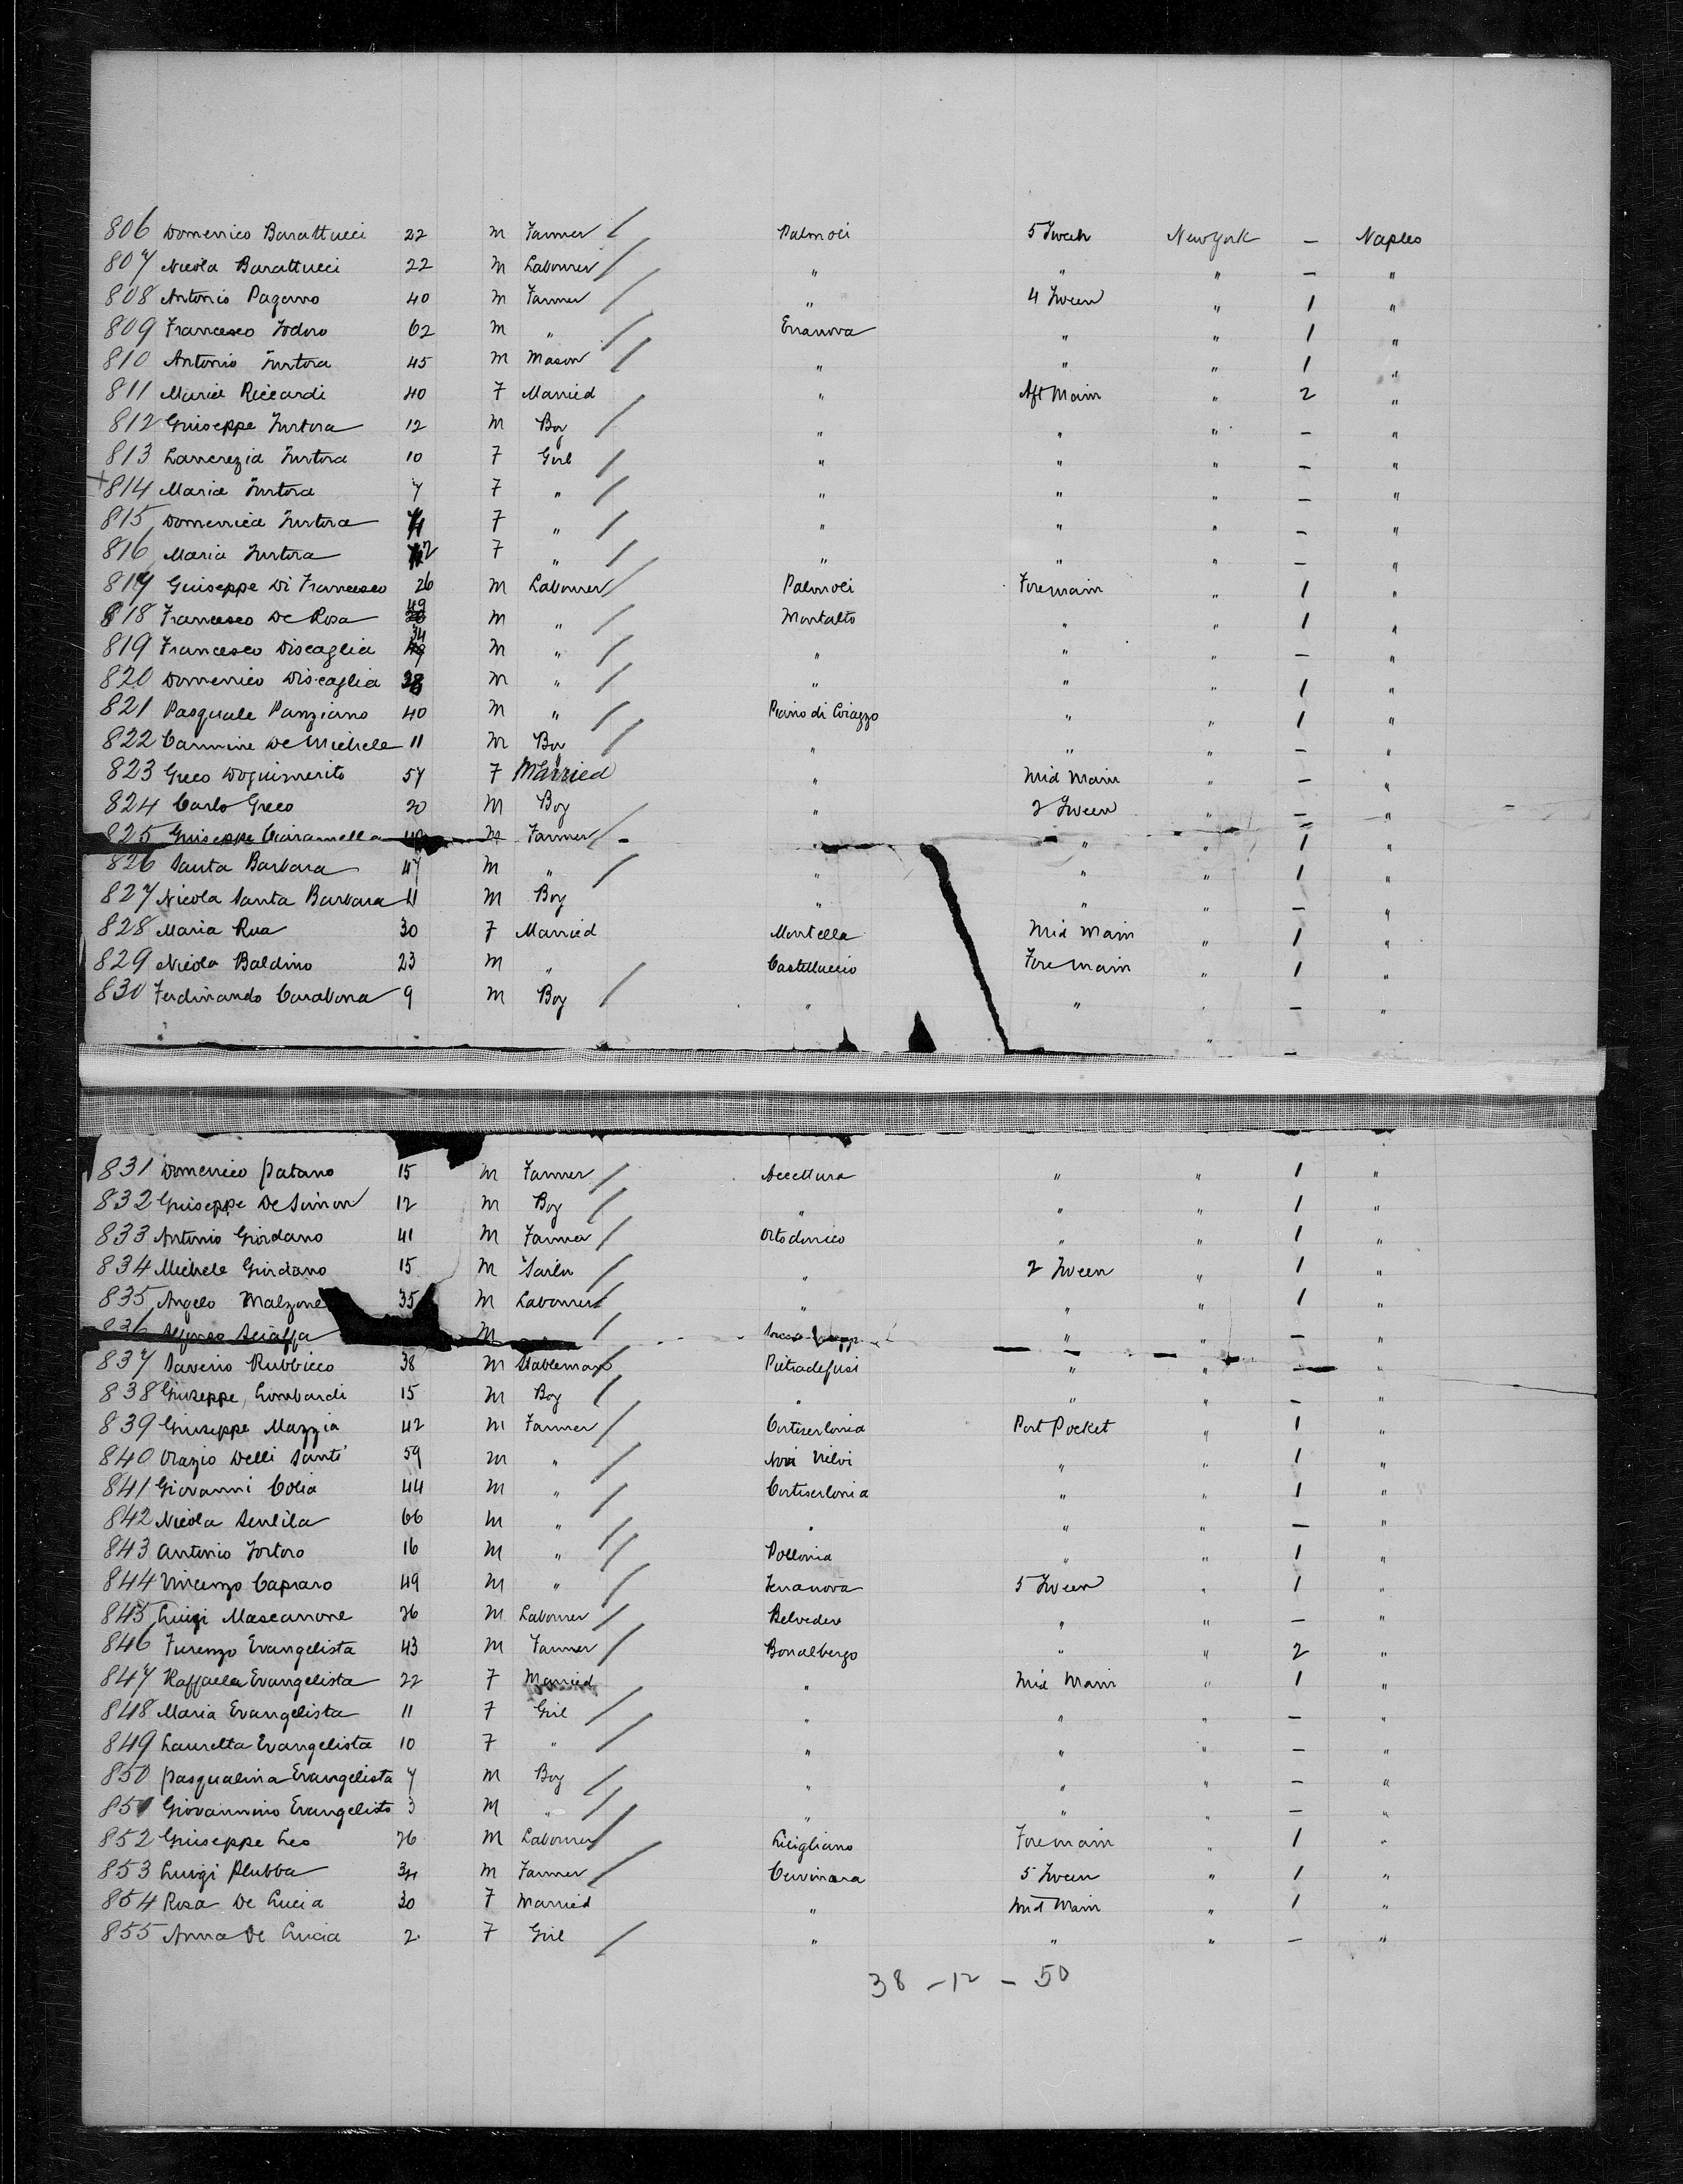 806 Domenico Barattucci 22 m Farmer / Palmoli 5 Tween New York – Naples
807 Nicola Barattucci 22 m Labourer / " " " – "
808 Antonio Pagano 40 m Farmer / " 4 Tween " 1 "
809 Francesco Todoro 62 m " / Erranova " " 1 "
810 Antonio Turtora 45 m Mason / " " " 1 "
811 Maria Riccardi 40 F Married " Aft Main " 2 "
812 Guiseppe Turtora 12 m Boy / " " " – "
813 Lancrezia Turtora 10 F Girl / " " " – "
+ 814 Maria Turtora 7 F " / " " " – "
815 Domenica Turtora 4 F " / " " " – "
816 Maria Turtora 2 F " / " " " – "
817 Guiseppe Di Francesco 26 m Labourer / Palmoli Foremain " 1 "
818 Francesco De Rosa 49 m " / Montalto " " 1 "
819 Francesco Discaglia 34 m " / " " " – "
820 Domenico Discaglia 38 m " / " " " 1 "
821 Pasquale Panziano 40 m " / Piano di Coiazzo " " 1 "
822 Carmine De Michele 11 m Boy / " " " – "
823 Greco 57 F Married " Mid Main " – "
824 Carlo Greco 20 m Boy / " 2 Tween " – "
825 Guiseppe Ciaramella m Farmer / " " 1 "
826 Santa Barbara 47 m " / " " " 1 "
827 Nicola Santa Barbara 11 m Boy " " " – "
828 Maria Rua 30 F Married Montella Mid Main " 1 "
829 Nicola Baldino 23 m " Castelluccio Fore main " 1 "
830 Ferdinando Carabona 9 m Boy / " " " – "
" –
831 Domenico Patano 15 m Farmer / Accettura " " 1 "
832 Guiseppe De Simon 12 m Boy / " " " 1 "
833 Antonio Giordano 41 m Farmer / Ortodonico " " 1 "
834 Michele Giordano 15 m / " 2 Tween " 1 "
835 Angelo Malzone 35 m Labourer / " " " 1 "
836 Alfonso Sciaffa m / " " – "
837 Saverio Rubbicco 38 m Stableman / Pietradefusi " " – "
838 Giuseppe Lombardi 15 m Boy / " " " – "
839 Giuseppe Mazzia 42 m Farmer / Port Pocket " 1 "
840 Orazio Delli Santi 59 m " / Novi Velvi " " 1 "
841 Giovanni Colia 44 m " / " " 1 "
842 Nicola 66 m " / " " " – "
843 Antonio Tortoro 16 m " / Pollonia " " 1 "
844 Vincenzo Capraro 49 m " / Terranova 5 Tween " 1 "
845 Luigi Mascarone 26 m Labourer / Belvedere " " – "
846 Furenzo Evangelista 43 m Farmer / Bonalbergo " " 2 "
847 Raffaella Evangelista 22 F Married " Mid Main " 1 "
848 Maria Evangelista 11 F Girl / " " " – "
849 Lauretta Evangelista 10 F " / " " " – "
850 Pasqualina Evangelista 7 m Boy / " " " – "
851 Giovannino Evangelisto 3 m " / " " " – "
852 Guiseppe Leo 26 m Labourer / Licigliano Foremain " 1 "
853 Luigi Plubba 34 m Farmer / Cervinara 5 Tween " 1 "
854 Rosa De Lucia 30 F Married " Mid Main " 1 "
855 Anna De Lucia 2 F Girl / " " " – "
38 – 12 – 50